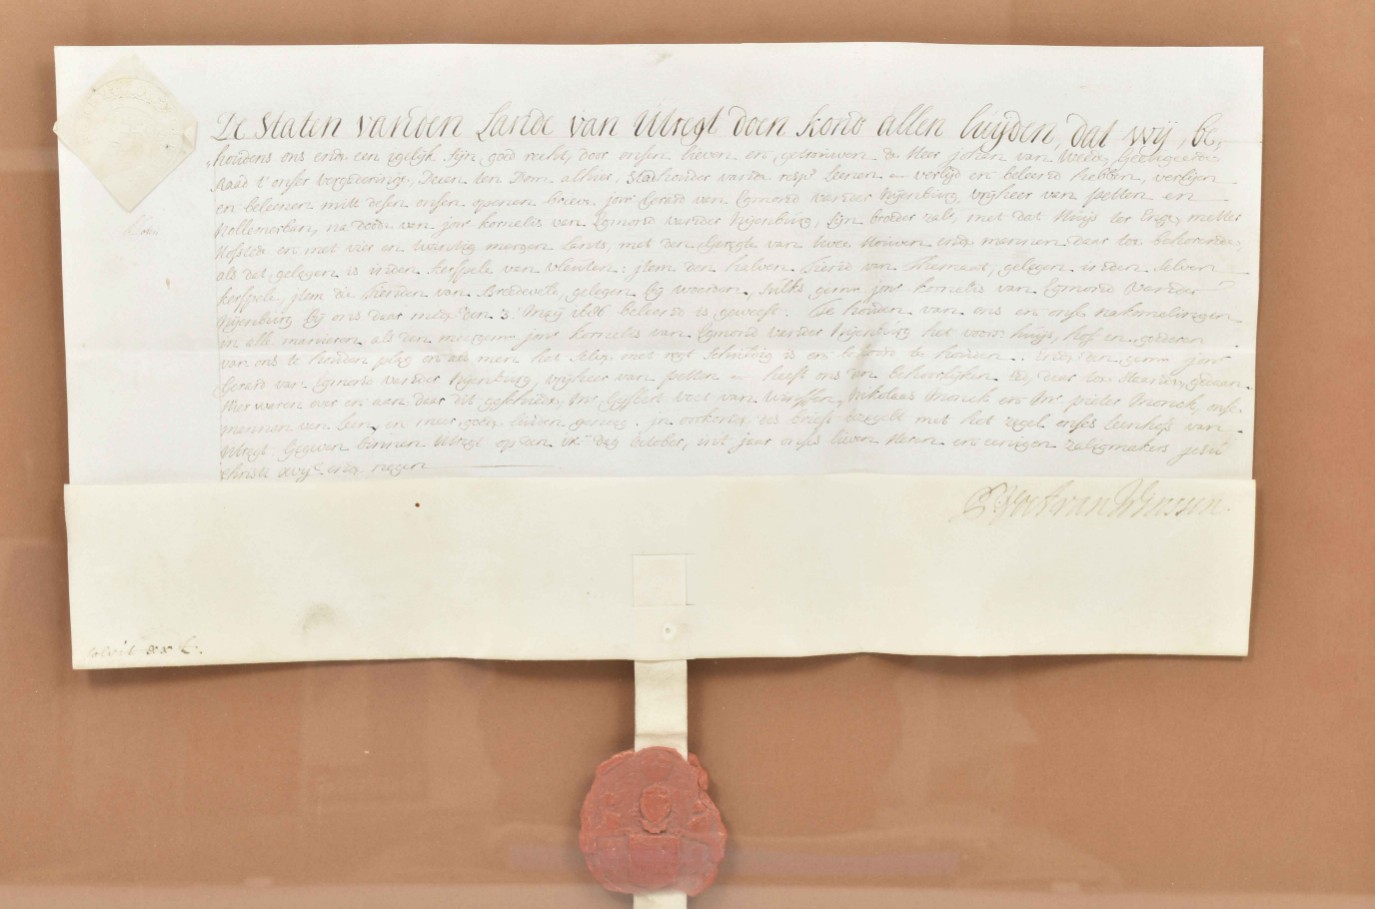 De Staten van den Lande van Utregt doen kond allen luyden, dat wij, be,
houdens ons ende een ygelijk sijn goed recht, door onsen lieven en getrouwen de Heer johan van Weede, Gedeputeerde
Raad t' onser vergadering, Deken ten Dom alhier, Stadhouder van de resp. leenen verlyd en beleend hebben, verlyen
en beleenen mitt desen onsen openen brieve jonr Gerard van Egmond van der Nijenburg, vrijheer van petten en
Nollemerban, na dode van jonr kornelis van Egmond van der Nijenburg, sijn broeder zalr, met dat Huijs ter Eng, metter
Hofstede en met vier en twintig mergen lants, met den Geregte van twee Hoeven ende mannen daar toe behorende,
als dat gelegen is in den kerspele van vleuten: jtem den halven Tiend van Themaat, gelegen in den selven
kerspele, jtem die Tienden van Bredevelt, gelegen bij woerden, sulks gem jonr kornelis van Egmond van der
Nijenburg bij ons daar mede den 3 Meij beleend is geweest. Te houden van ons en onse nakomelingen
in alle manieren, als den meergem jonr kornelis van Egmond van der Nijenburg het voors. huijs, hof en goederen
van ons te houden plag en als men het selve met regt schuldig is en behoord te houden. ende den gem jonr
Gerard van Egmond van der Nijenburg, vrijheer van petten heeft ons den behoorlijken Ed, daar toe staande, gedaan.
Hier waren over en aan daar dit geschiede, Mr. Gijsbert Voet van Winssen, Nikolaas Monick en Mr. pieter Monick, onse
mannen van leen, en meer goede luiden genoeg. jn oorkonde des briefs bezegelt met het zegel onses leenhofs van
Utregt. Gegeven binnen Utregt op den dag october, in't jaar onses lieven Heren en eenigen zaligmakers jesu
christi xvijc ende negen
G Voet van Winssen.
solvit xx